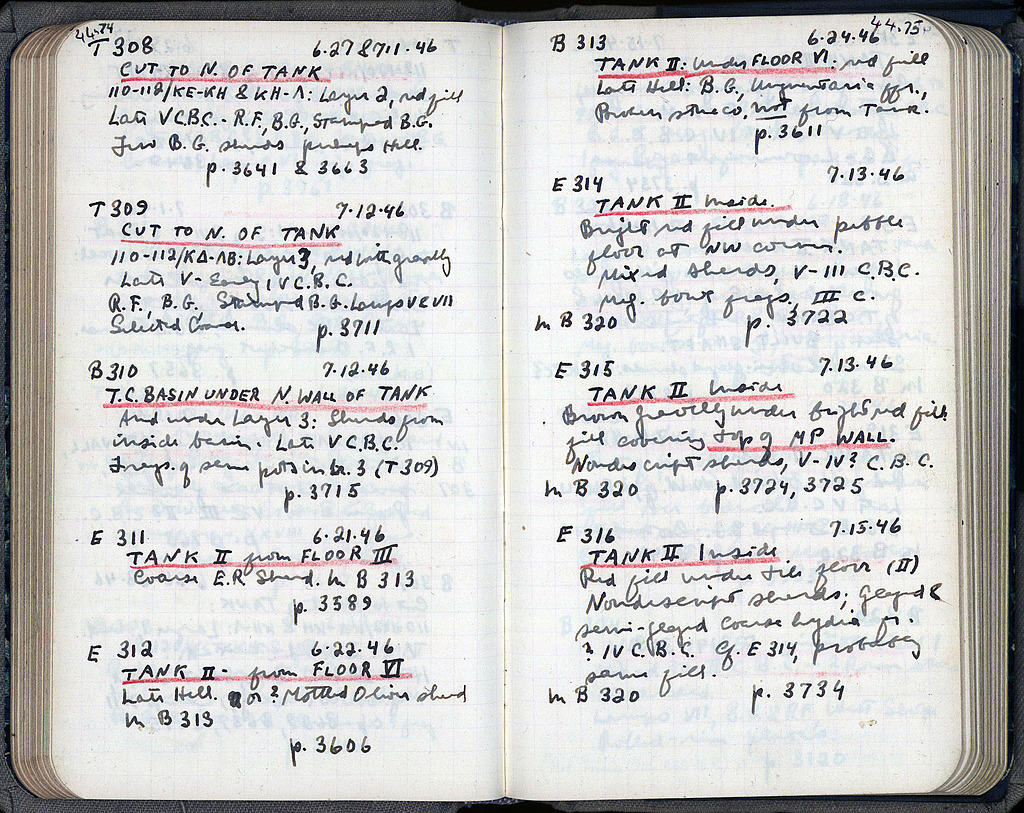 44.74
T 308 6.27 & 7.11.46
CUT TO N. OF TANK
110-112/KE-KH & KH-Λ: Layer 2, red fill
Late V C.B.C. - R.F., B.G., Stamped B.G.
Few B.G. sherds perhaps Hell.
p. 3641 & 3663
T 309 7.12.46
CUT TO N. OF TANK
110-112/KΔ-ΛB: Layer 3, red with gravelly
Late V - Early IV C.B.C.
R.F., B.G., Stamped B.G. Lamps V & VII
Selected Coarse. p. 3711
B 310 7.12.46
T.C. BASIN UNDER N. WALL OF TANK
And under Layer 3: Sherds from
inside basin. Late V C.B.C.
Frags. of same pots in br. 3 (T 309)
p. 3715
E 311 6.21.46
TANK II from FLOOR III
Coarse E.R. Sherd. In B 313
p. 3589
E 312 6.22.46
TANK II - from FLOOR VI
Late Hell. or ? Mottled Olive sherd
In B 313
p. 3606
44.75
B 313 6.24.46
TANK II: under FLOOR VI. red fill
Late Hell: B.G., Unguentaria ffr.,
Broken stucco, not from Tank.
p. 3611
E 314 7.13.46
TANK II Inside.
Bright red fill under pebble
floor at NW corner.
Mixed sherds, V-III C.B.C.
Meg. bowl frags, III c.
In B 320 p. 3722
E 315 7.13.46
TANK II Inside
Brown gravelly under bright red fill
fill covering top of MP WALL.
Nondescript sherds, V-IV? C.B.C.
In B 320 p. 3724, 3725
E 316 7.15.46
TANK II Inside
Red fill under tile floor (II)
Nondescript sherds; glazed &
semi-glazed coarse hydria fr.
? IV C.B.C. Cf. E 314, probably
same fill.
In B 320 p. 3734